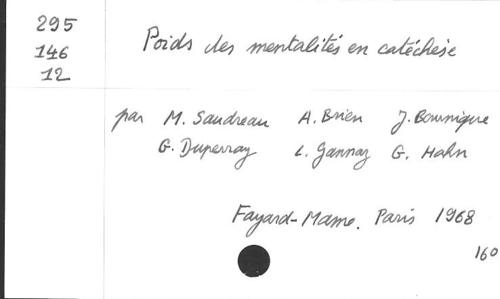 295
146
12
Poids des mentalités en catéchèse
par M. Saudreau A. Brien J. Bournique
G. Duperray L. Gannaz G. Hahn
Fayard-Mame. Paris 1968
160